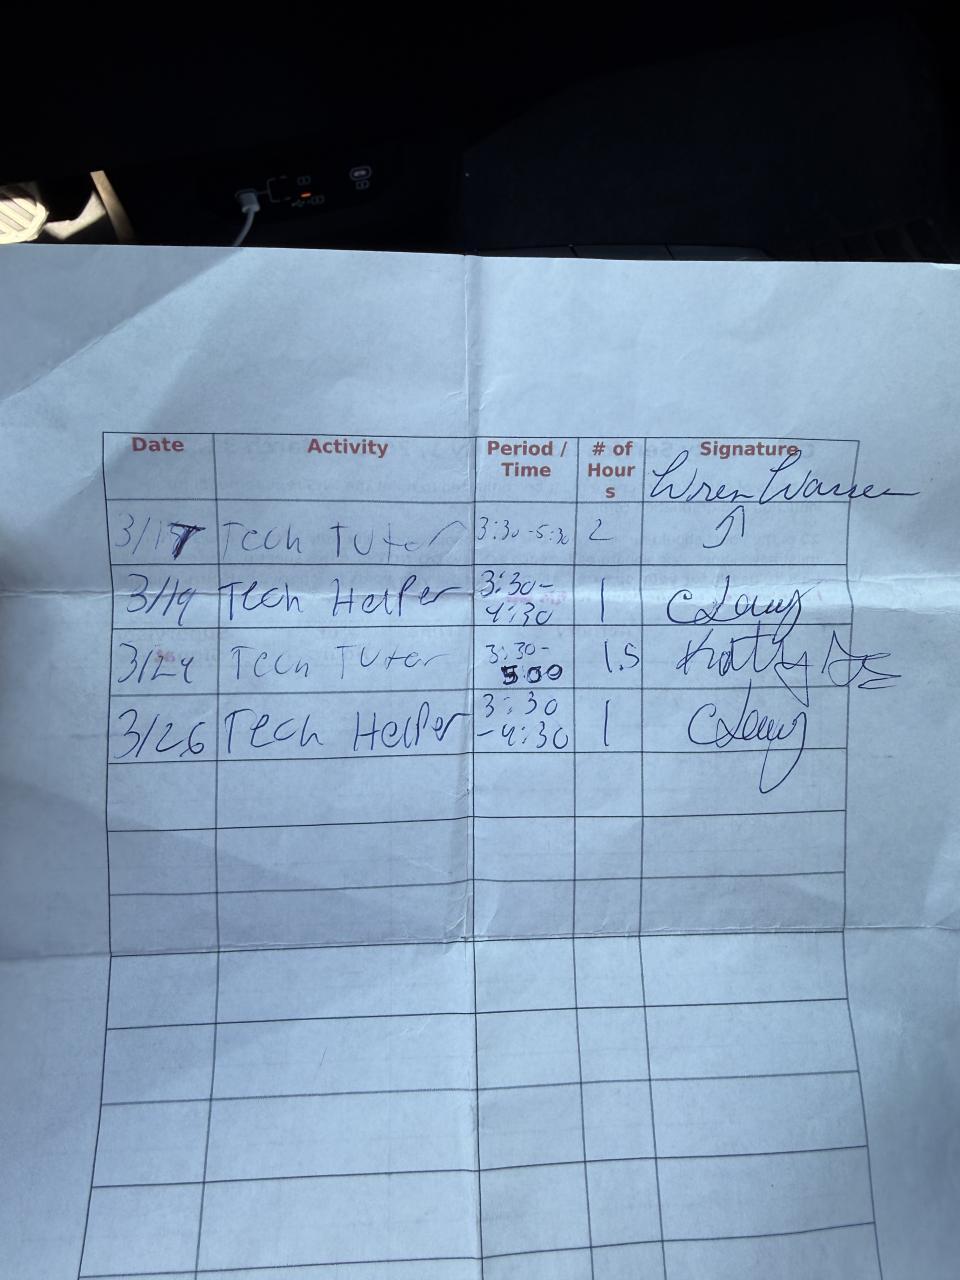 Date Activity Period / Time # of Hours Signature
Wren Warren
3/17 Tech Tutor 3:30-5:30 2
3/19 Tech Helper 3:30-4:30 1
3/24 Tech Tutor 3:30-5:00 1.5
3/26 Tech Helper 3:30-4:30 1